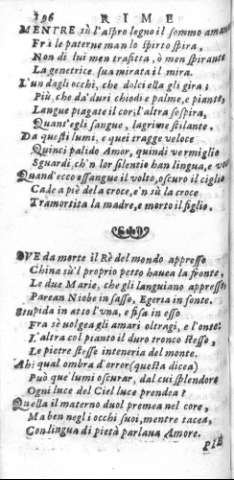 196 RIME
MENTRE sù l'aspro legno il sommo amante
Frà le paterne man lo spirto spira,
Non di lui men trafitta, ò men spirante
La genetrice sua mirata il mira.
L'un dagli occhi, che dolci ella gli gira;
Più, che da' duri chiodi e palme, e piante,
Langue piagate il cor; l'altra sospira,
Quant'egli sangue, lagrime stilante.
Da questi lumi, e quei tragge veloce
Quinci palido Amor, quindi vermiglio
Sguardi, ch'n lor silentio han lingua, e voce
Quand'ecco essangue il volto, oscuro il ciglio
Cade a piè de la croce, e'n sù la croce
Tramortita la madre, e morto il figlio.
OVE da morte il Rè del mondo appresso
China sù'l proprio petto hauea la fronte,
Le due Marie, che gli languiano appresso
Parean Niobe in sasso, Egeria in fonte.
Stupida in atto l'vna, e fisa in esso
Fra sè uolgea gli amari oltragi, e l'onte:
L'altra col pianto il duro tronco stesso,
Le pietre stesse inteneria del monte.
Ahi qual ombra d'error (questa dicea)
Può que' lumi oscurar, dal cui splendore
Ogni luce del Ciel luce prendea?
Quella il materno duol premea nel core,
Ma ben negli occhi suoi, mentre tacea,
Con lingua di pietà parlaua Amore.